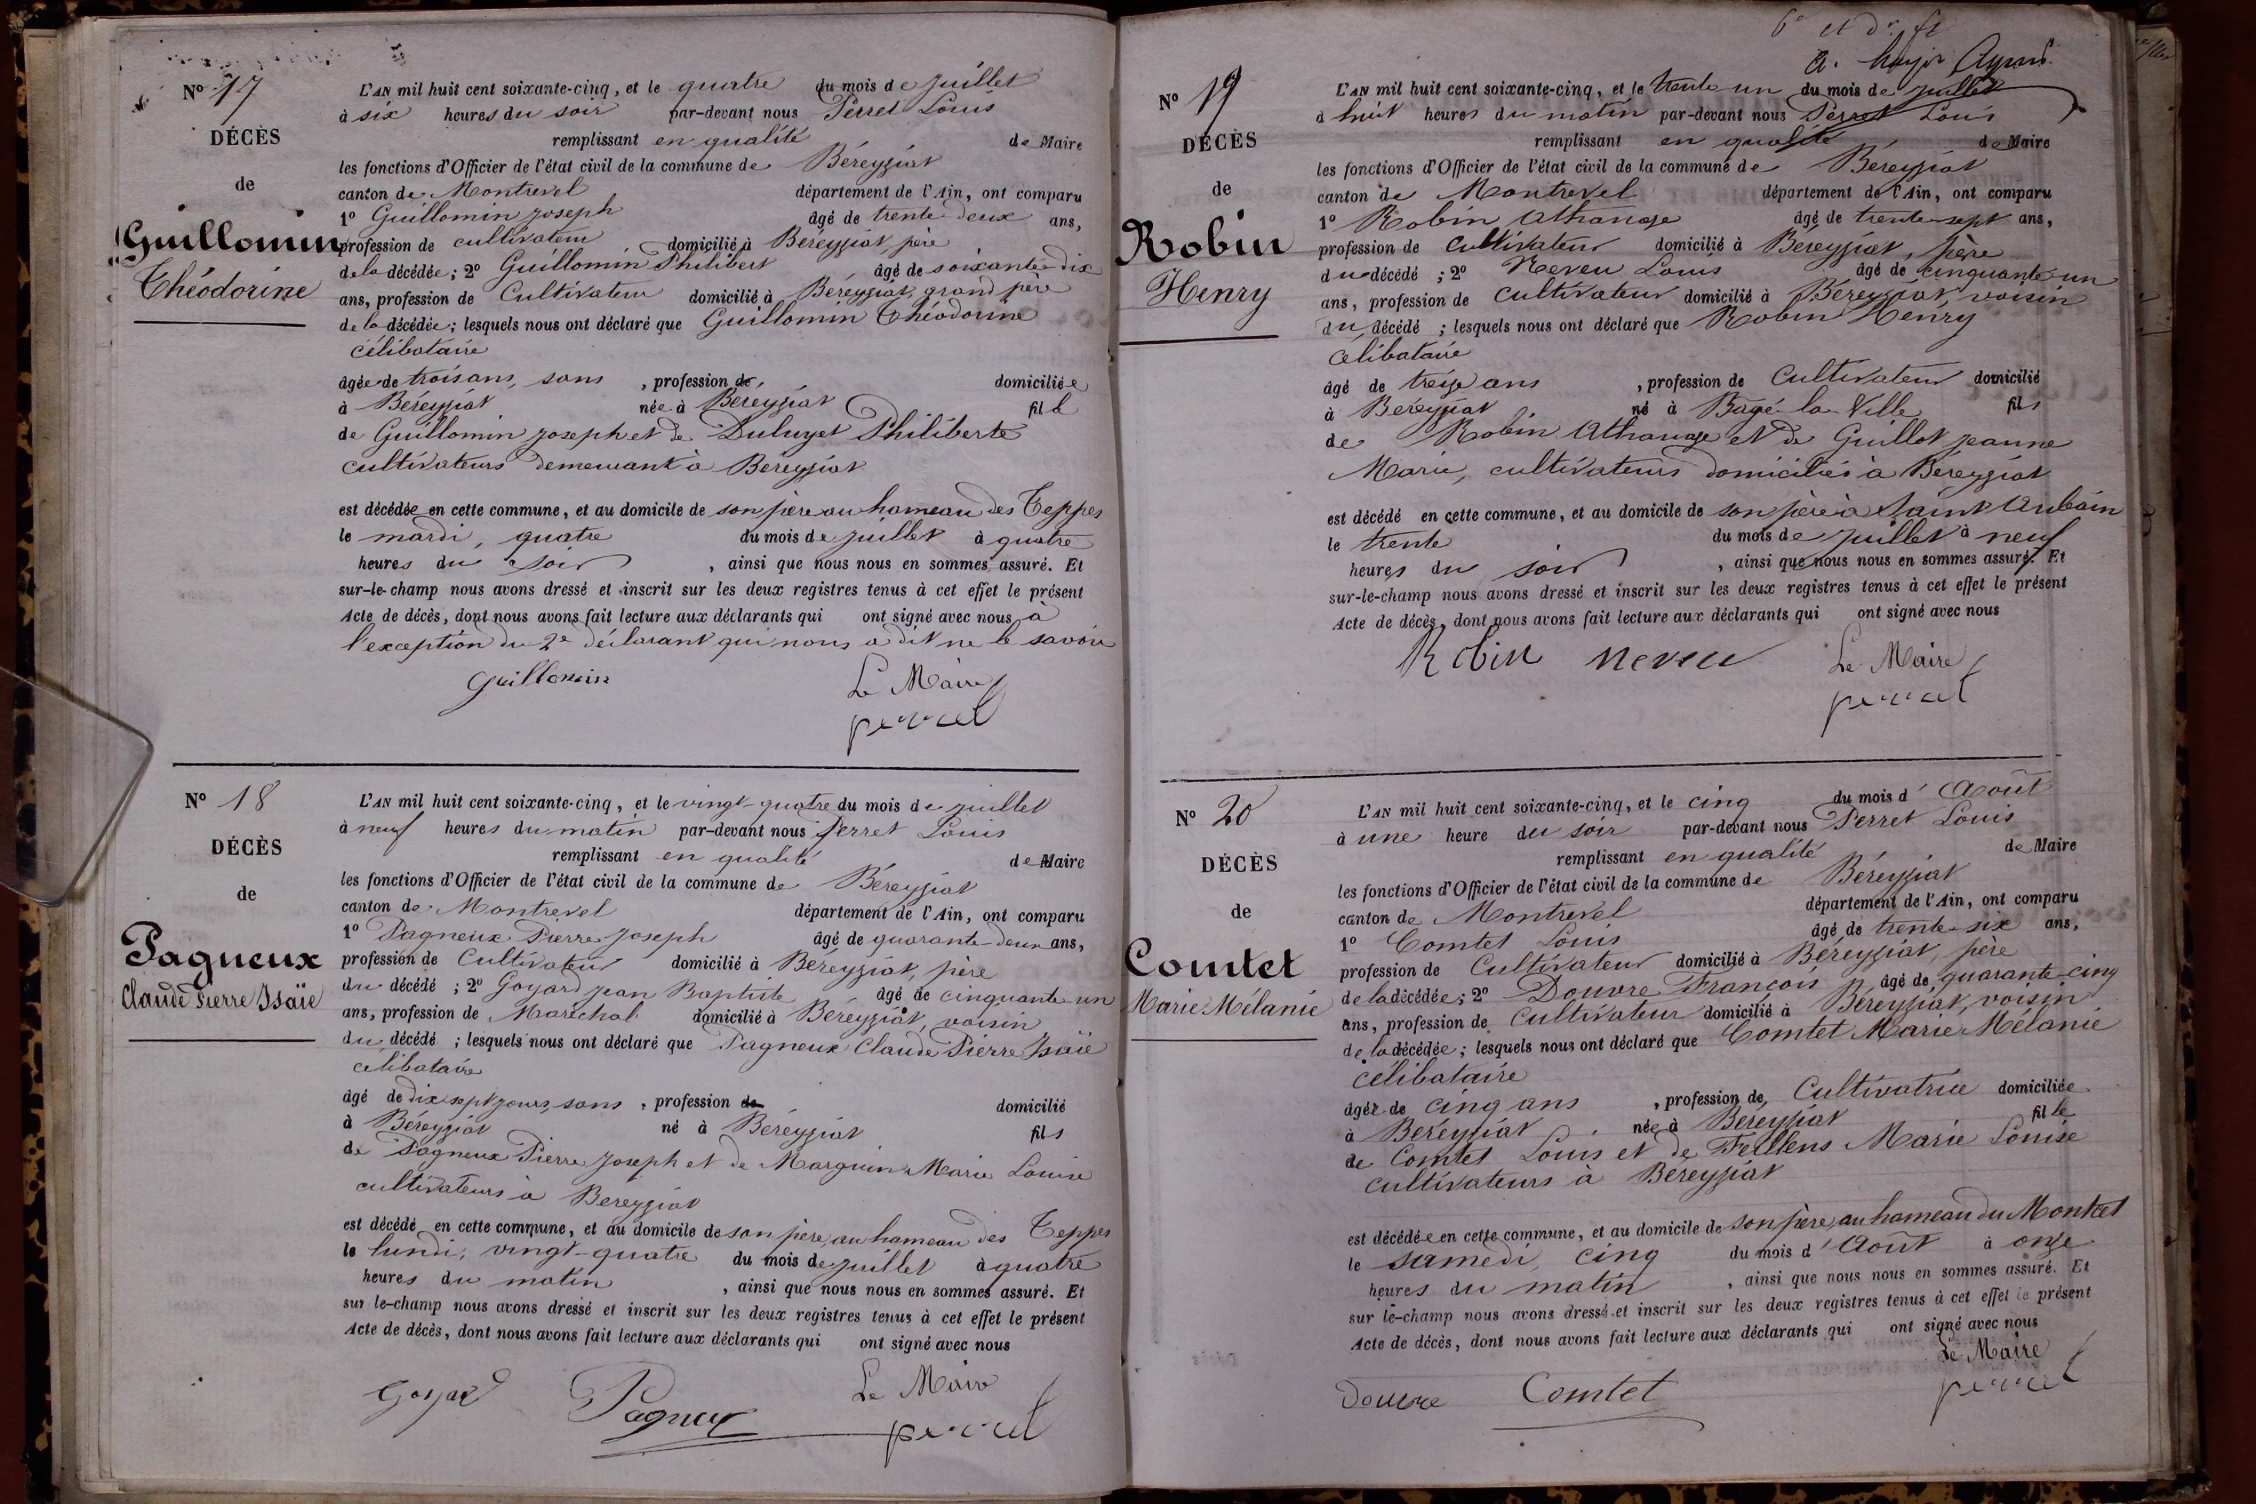 N° 17
DÉCÈS
de
Guillomin
Théodorine
L'AN mil huit cent soixante-cinq, et le quatre du mois de juillet
à six heures du soir par-devant nous Perret Louis
remplissant en qualité de Maire
les fonctions d'Officier de l'état civil de la commune de Béreyziat
canton de Montrevel département de l'Ain, ont comparu
1° Guillomin Joseph âgé de trente deux ans,
profession de cultivateur domicilié à Béreyziat, père
de la décédée ; 2° Guillomin Philibert âgé de soixante-dix
ans, profession de Cultivateur domicilié à Béreyziat, grand père
de la décédée ; lesquels nous ont déclaré que Guillomin Théodorine
célibataire
âgée de trois ans, sans , profession de domiciliée
à Béreyziat née à Béreyziat fille
de Guillomin Joseph et de Duluyet Philiberte
cultivateurs demeurant à Béreyziat
est décédée en cette commune, et au domicile de son père au hameau des Teppes
le mardi, quatre du mois de juillet à quatre
heures du soir , ainsi que nous nous en sommes assuré. Et
sur-le-champ nous avons dressé et inscrit sur les deux registres tenus à cet effet le présent
Acte de décès, dont nous avons fait lecture aux déclarants qui ont signé avec nous à
l'exception du 2e déclarant qui nous a dit ne le savoir
Guillomin Le Maire
perret
N° 18
DÉCÈS
de
Pagneux
Claude Pierre Isaïe
L'AN mil huit cent soixante-cinq, et le vingt-quatre du mois de juillet
à neuf heures du matin par-devant nous Perret Louis
remplissant en qualité de Maire
les fonctions d'Officier de l'état civil de la commune de Béreyziat
canton de Montrevel département de l'Ain, ont comparu
1° Pagneux Pierre Joseph âgé de quarante-deux ans,
profession de Cultivateur domicilié à Béreyziat, père
du décédé ; 2° Goyard Jean Baptiste âgé de cinquante-un
ans, profession de Maréchal domicilié à Béreyziat, voisin
du décédé ; lesquels nous ont déclaré que Pagneux Claude Pierre Isaïe
célibataire
âgé de dix sept jours, sans , profession de domicilié
à Béreyziat né à Béreyziat fils
de Pagneux Pierre Joseph et de Marguin Marie Louise
cultivateurs à Béreyziat
est décédé en cette commune, et au domicile de son père, au hameau des Teppes
le lundi, vingt-quatre du mois de juillet à quatre
heures du matin , ainsi que nous nous en sommes assuré. Et
sur le-champ nous avons dressé et inscrit sur les deux registres tenus à cet effet le présent
Acte de décès, dont nous avons fait lecture aux déclarants qui ont signé avec nous
Goyard Pagneux Le Maire
perret
6e et dr ft
N° 19
DÉCÈS
de
Robin
Henry
L'AN mil huit cent soixante-cinq, et le trente un du mois de juillet
à huit heures du matin par-devant nous Perret Louis
remplissant en qualité de Maire
les fonctions d'Officier de l'état civil de la commune de Béreyziat
canton de Montrevel département de l'Ain, ont comparu
1° Robin Athanase âgé de trente-sept ans,
profession de Cultivateur domicilié à Béreyziat, père
du décédé ; 2° Neveu Louis âgé de cinquante-un
ans, profession de cultivateur domicilié à Béreyziat, voisin
du décédé ; lesquels nous ont déclaré que Robin Henry
célibataire
âgé de treize ans , profession de Cultivateur domicilié
à Béreyziat né à Bagé-la-Ville fils
de Robin Athanase et de Guillot Jeanne
Marie, cultivateurs domiciliés à Béreyziat
est décédé en cette commune, et au domicile de son père à Saint Aubain
le trente du mois de juillet à neuf
heures du soir , ainsi que nous nous en sommes assuré. Et
sur-le-champ nous avons dressé et inscrit sur les deux registres tenus à cet effet le présent
Acte de décès, dont nous avons fait lecture aux déclarants qui ont signé avec nous
Robin neveu Le Maire
perret
N° 20
DÉCÈS
de
Comtet
Marie Mélanie
L'AN mil huit cent soixante-cinq, et le cinq du mois d'Août
à une heure du soir par-devant nous Perret Louis
remplissant en qualité de Maire
les fonctions d'Officier de l'état civil de la commune de Béreyziat
canton de Montrevel département de l'Ain, ont comparu
1° Comtet Louis âgé de trente-six ans,
profession de Cultivateur domicilié à Béreyziat, père
de la décédée ; 2° Douvre François âgé de quarante-cinq
ans, profession de Cultivateur domicilié à Béreyziat, voisin
de la décédée ; lesquels nous ont déclaré que Comtet Marie Mélanie
célibataire
âgée de cinq ans , profession de Cultivatrice domiciliée
à Béreyziat née à Béreyziat fille
de Comtet Louis et de Feillens Marie Louise
cultivateurs à Béreyziat
est décédée en cette commune, et au domicile de son père, au hameau du Montcet
le samedi, cinq du mois d'Août à onze
heures du matin , ainsi que nous nous en sommes assuré. Et
sur le-champ nous avons dressé et inscrit sur les deux registres tenus à cet effet le présent
Acte de décès, dont nous avons fait lecture aux déclarants qui ont signé avec nous
Le Maire
Douvre Comtet perret